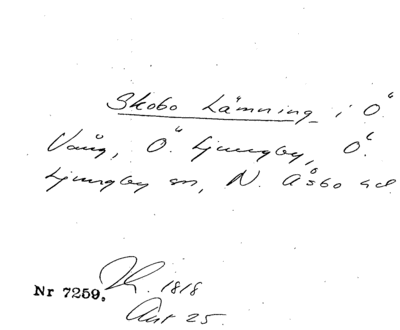 Skobo Lämning i Ö.
Vång, Ö. Ljungby, Ö.
Ljungby sn, N. Åsbo hd.
Nr 7259. 1818
Akt 25.